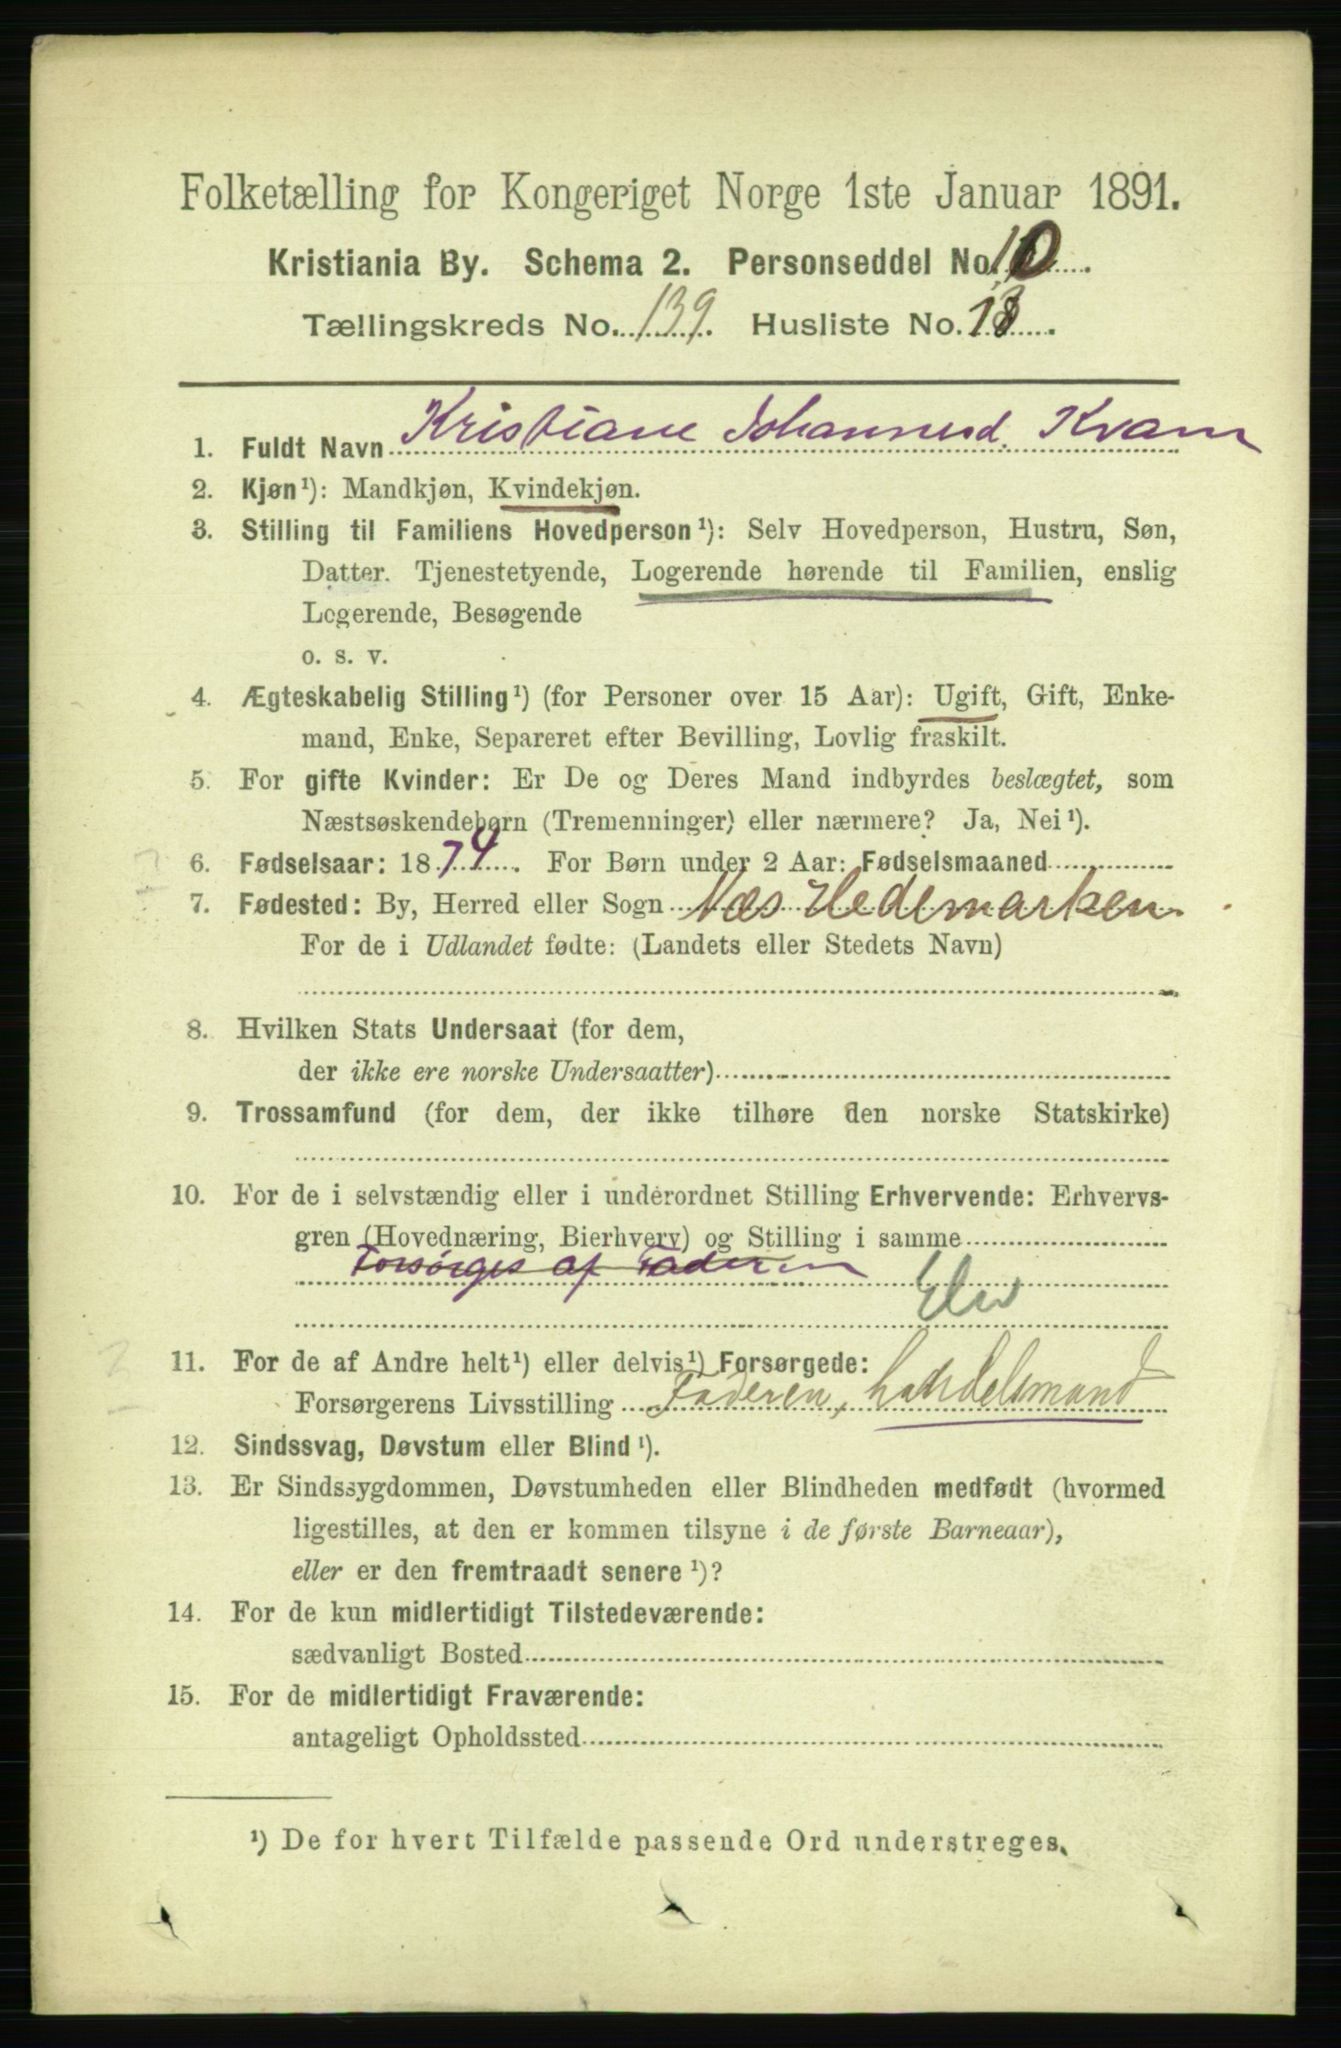 Folketælling for Kongeriget Norge 1ste Januar 1891.
Kristiania By. Schema 2. Personseddel No. 10.
Tællingskreds No. 139. Husliste No. 13.
1. Fuldt Navn Kristiane Johannesd. Kvam
2. Kjøn¹): Mandkjøn, Kvindekjøn.
3. Stilling til Familiens Hovedperson¹): Selv Hovedperson, Hustru, Søn,
Datter. Tjenestetyende, Logerende hørende til Familien, enslig
Logerende, Besøgende
o. s. v.
4. Ægteskabelig Stilling¹) (for Personer over 15 Aar): Ugift, Gift, Enke-
mand, Enke, Separeret efter Bevilling, Lovlig fraskilt.
5. For gifte Kvinder: Er De og Deres Mand indbyrdes beslægtet, som
Næstsøskendebørn (Tremenninger) eller nærmere? Ja, Nei¹).
6. Fødselsaar: 1874. For Børn under 2 Aar: Fødselsmaaned
7. Fødested: By, Herred eller Sogn Næs Hedemarken.
For de i Udlandet fødte: (Landets eller Stedets Navn)
8. Hvilken Stats Undersaat (for dem,
der ikke ere norske Undersaatter)
9. Trossamfund (for dem, der ikke tilhøre den norske Statskirke)
10. For de i selvstændig eller i underordnet Stilling Erhvervende: Erhvervs-
gren (Hovednæring, Bierhverv) og Stilling i samme
Forsørges af Faderen
Elev
11. For de af Andre helt¹) eller delvis¹) Forsørgede:
Forsørgerens Livsstilling Faderen, handelsmand
12. Sindssvag, Døvstum eller Blind¹).
13. Er Sindssygdommen, Døvstumheden eller Blindheden medfødt (hvormed
ligestilles, at den er kommen tilsyne i de første Barneaar),
eller er den fremtraadt senere¹)?
14. For de kun midlertidigt Tilstedeværende:
sædvanligt Bosted
15. For de midlertidigt Fraværende:
antageligt Opholdssted
¹) De for hvert Tilfælde passende Ord understreges.